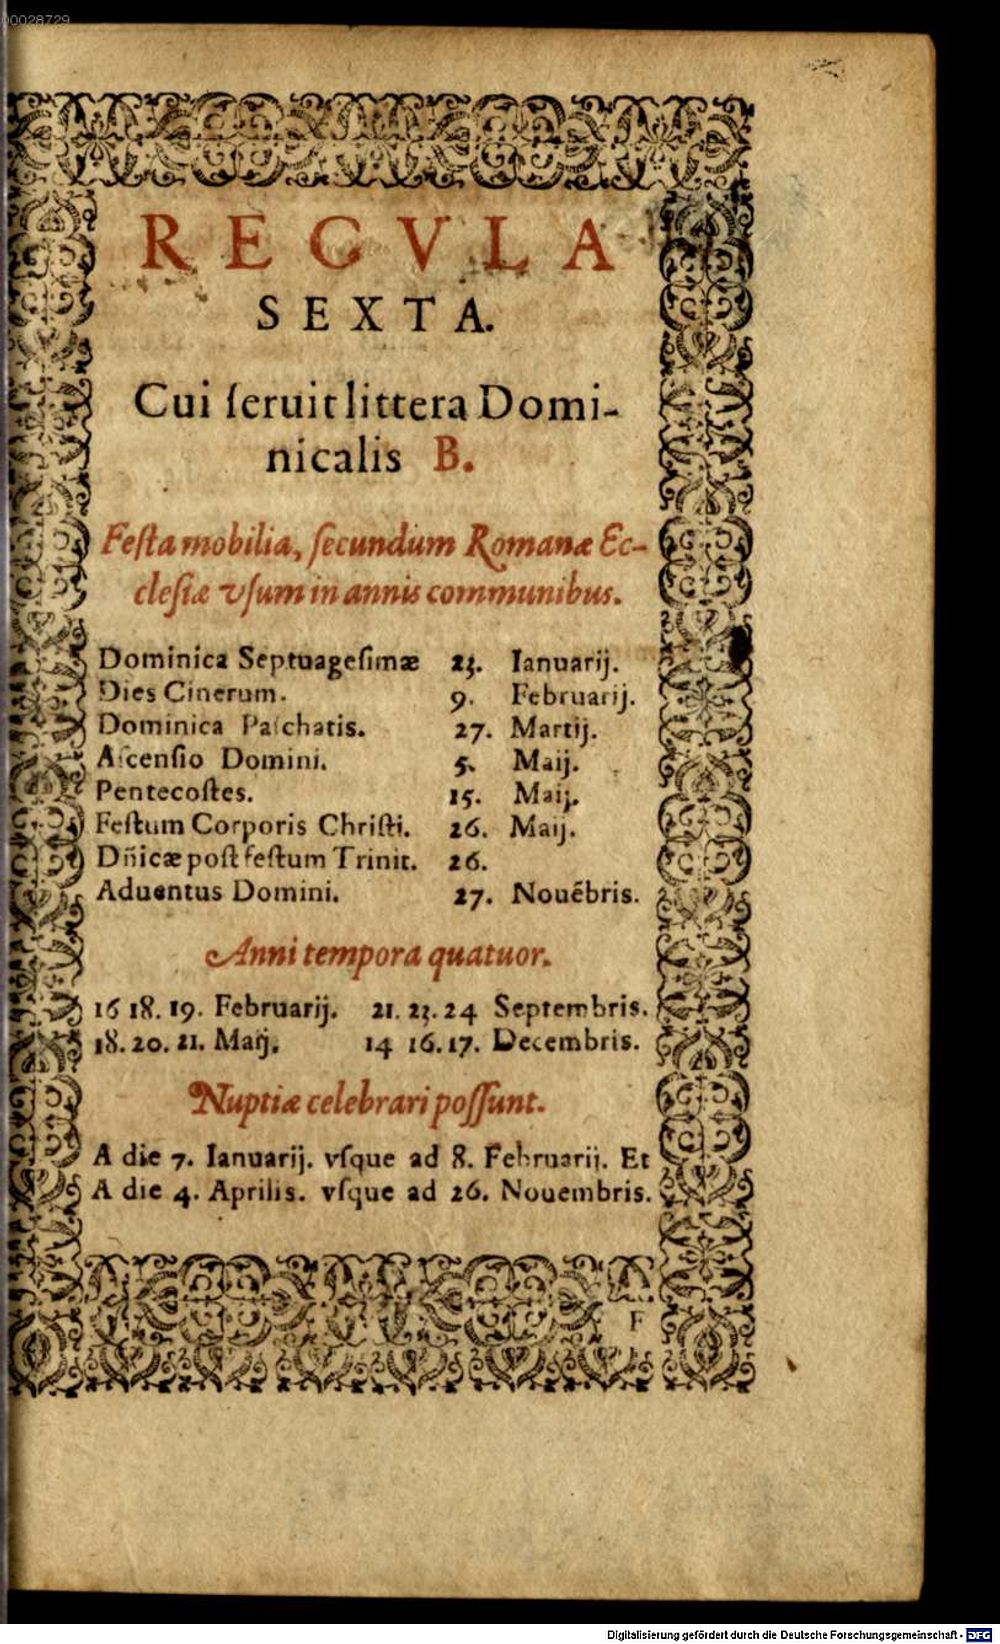 00028729
REGVLA
SEXTA.
Cui ſeruit littera Domi-
nicalis B.
Feſta mobilia, ſecundum Romanæ Ec-
cleſiæ vſum in annis communibus.
Dominica Septuagesimæ 23. Ianuarij.
Dies Cinerum. 9. Februarij.
Dominica Paſchatis. 27. Martij.
Aſcenſio Domini. 5. Maij.
Pentecoſtes. 15. Maij.
Feſtum Corporis Chriſti. 26. Maij.
Dn̄icæ poſt feſtum Trinit. 26.
Aduentus Domini. 27. Nouēbris.
Anni tempora quatuor.
16 18. 19. Februarij. 21. 23. 24 Septembris.
18. 20. 21. Maij. 14 16. 17. Decembris.
Nuptiæ celebrari poſſunt.
A die 7. Ianuarij. vſque ad 8. Februarij. Et
A die 4. Aprilis. vſque ad 26. Nouembris.
F
Digitalisierung gefördert durch die Deutsche Forschungsgemeinschaft - DFG